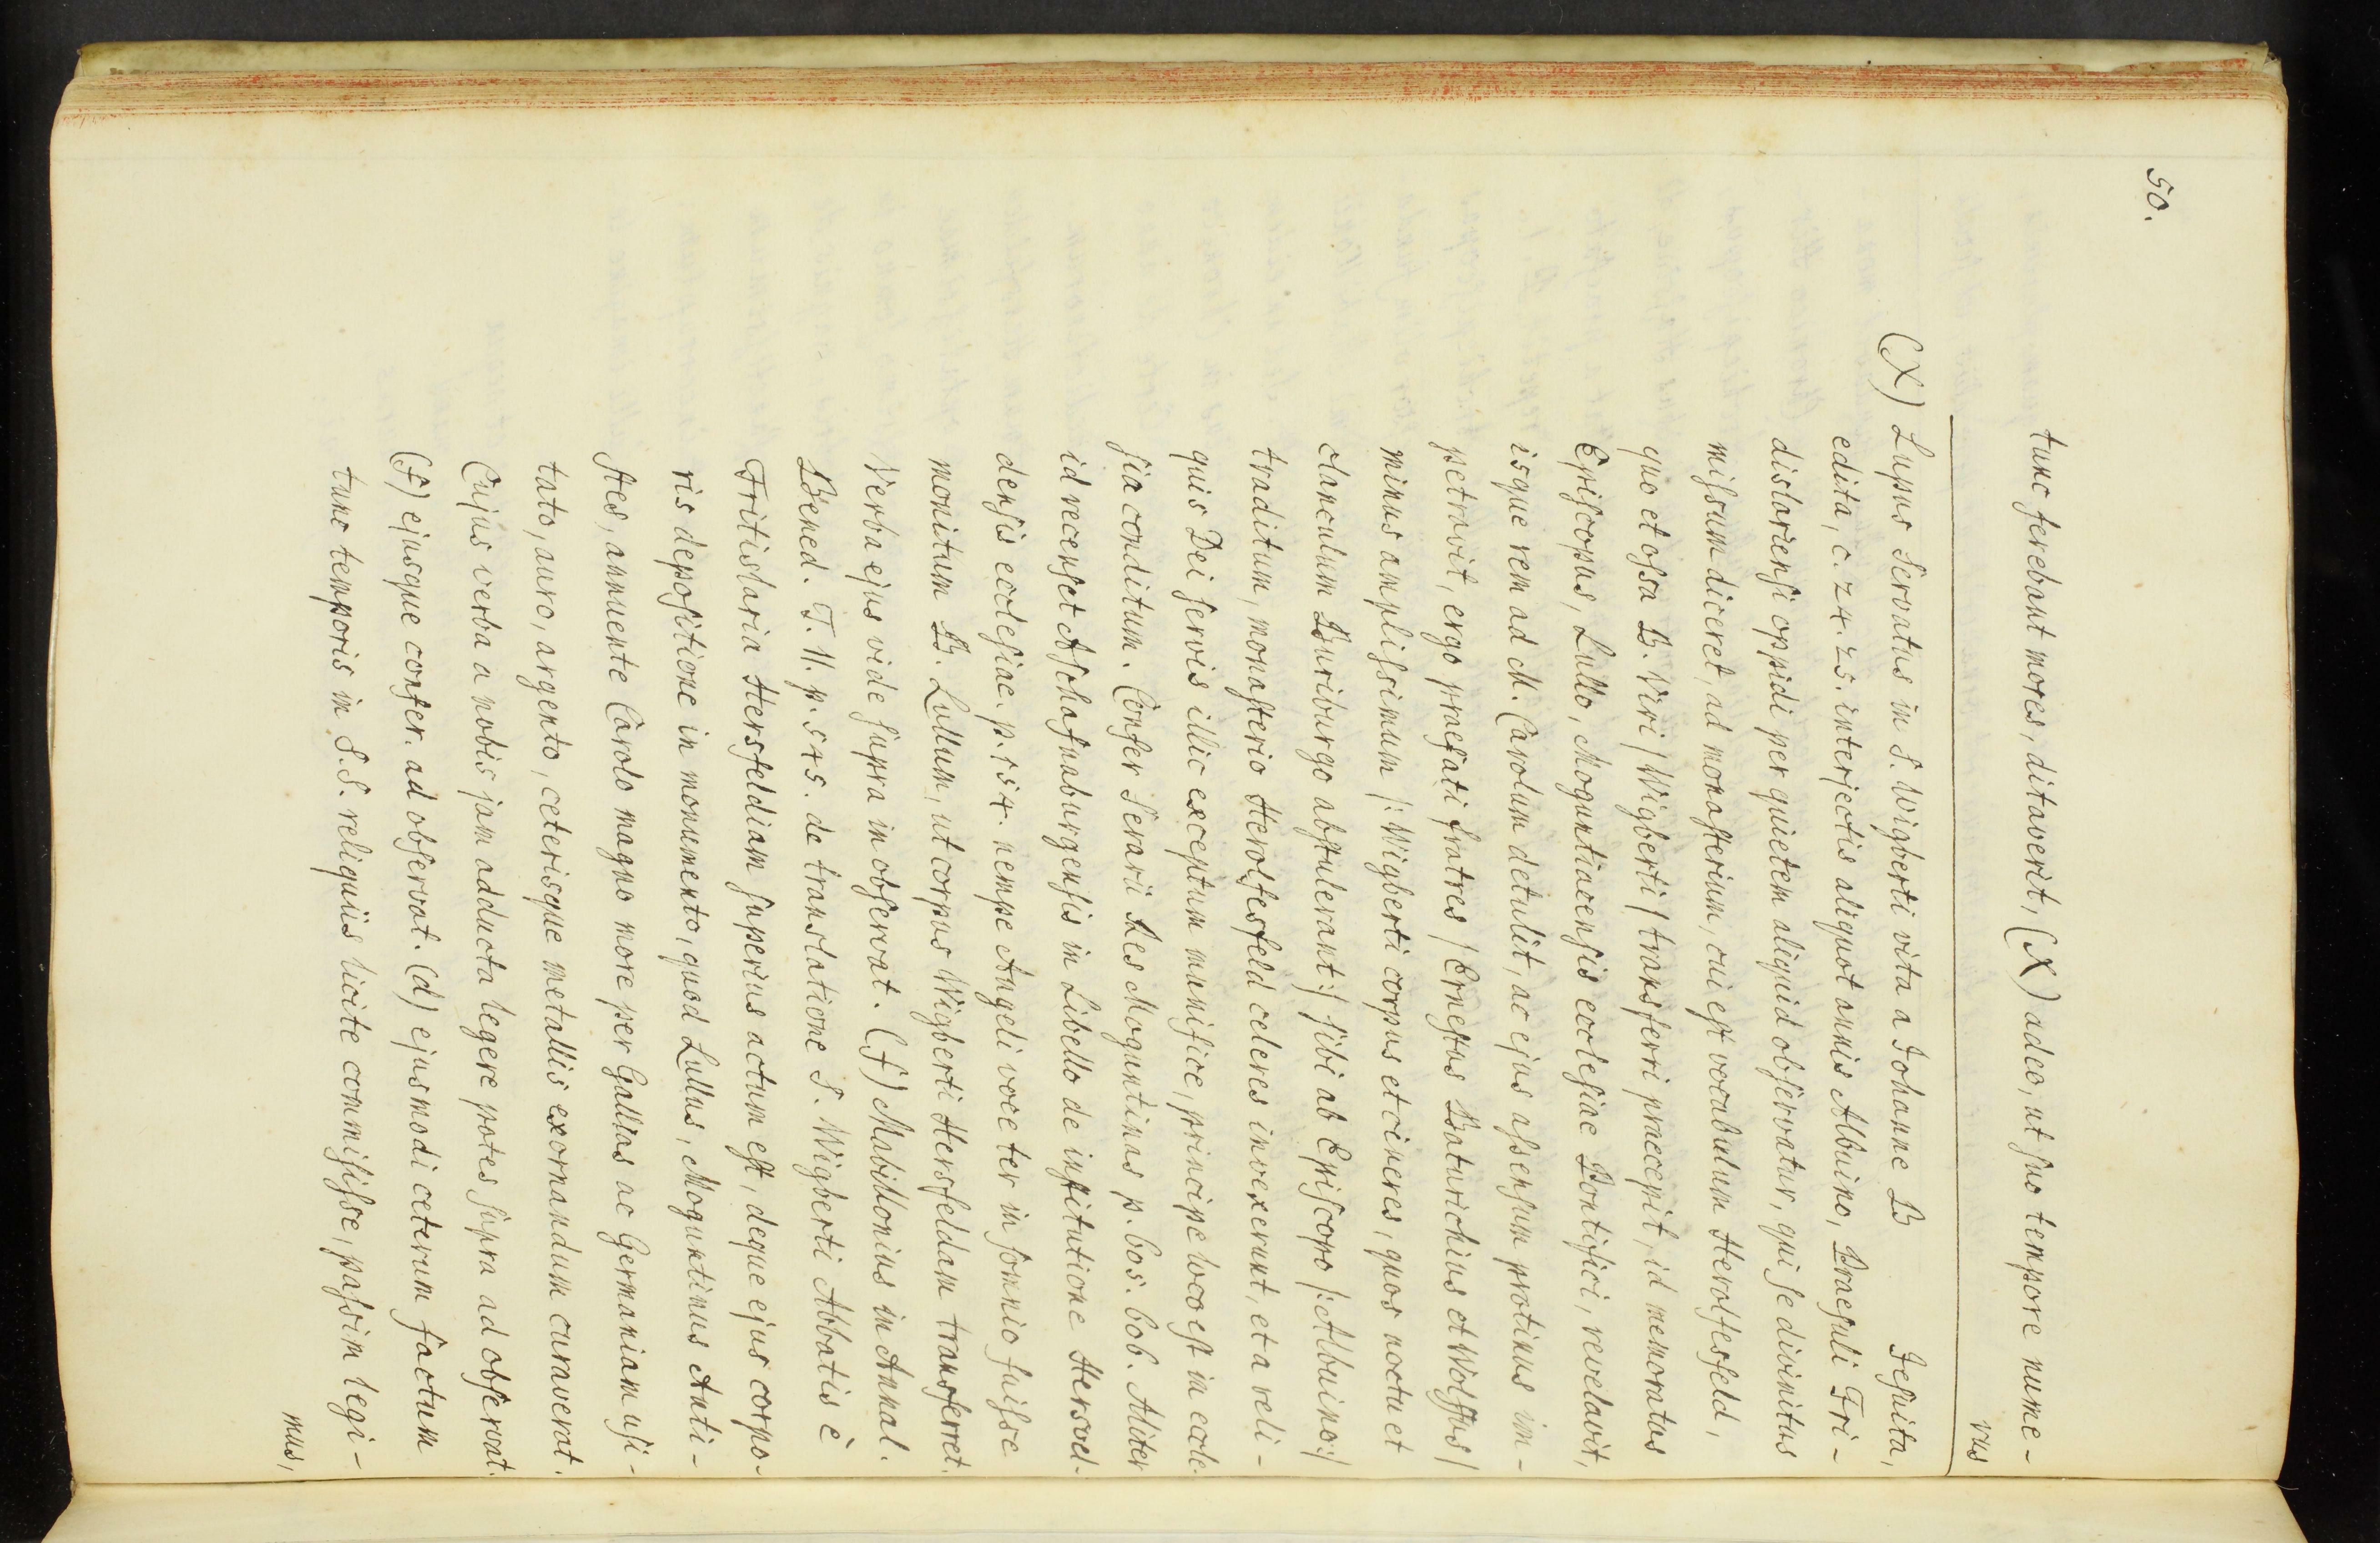 50.
tunc ferebant mores, ditaverit, (X) adeo, ut suo tempore nume-
rus
(X) Lupus Servatus in S. Wigberti vita a Johanne B Jesuita,
edita, c. 24. 25. interjectis aliquot annis Albuino, Praesuli Fri-
dislariensi oppidi per quietem aliquid observatur, qui se divinitus
missum diceret, ad monasterium, cui est vocabulum Herolfesfeld,
quo et ossa B. Viri /Wigberti/ transferri praecepit, id memoratus
Episcopus, Lullo, Moguntiacensis ecclesiae Pontifici, revelavit,
isque rem ad M. Carolum detulit, ac ejus assensum protinus im-
petravit, ergo praefati fratres /Ernestus Baturichius et Wolffus/
minus amplissimum /: Wigberti corpus et cineres, quos noctu et
clanculum Buriburgo abstulerant :/ sibi ab Episcopo /: Albuino :/
traditum, monasterio Herolfesfeld celeres invexerunt, et a reli-
quis Dei servis illic exceptum munifice, principe loco est in eccle-
sia conditum. Confer Serarii Res Moguntinas p. 605. 606. Aliter
id recenset Aschafnaburgensis in Libello de institutione Hersvel-
densis ecclesiae. p. 154. nempe Angeli voce ter in somnio fuisse
monitum B. Lullum, ut corpus Wigberti Hersfeldam transferret.
Verba ejus vide supra in observat. (f) Mabillonius in Annal.
Bened. T. II. p. 545. de translatione S. Wigberti Abbatis è
Fritislaria Hersfeldiam superius actum est, deque ejus corpo-
ris depositione in monumento, quod Lullus, Moguntinus Anti-
stes, annuente Carolo magno more per Gallias ac Germaniam usi-
tato, auro, argento, ceterisque metallis exornandum curaverat.
Cujus verba a nobis jam adducta legere potes supra ad observat.
(f) ejusque confer. ad observat. (d) ejusmodi ceterum factum
tunc temporis in S.S. reliquiis licite commisisse, passim legi-
mus,